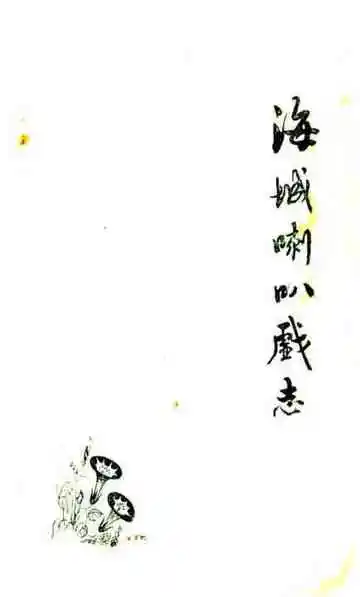 海城喇叭戲志